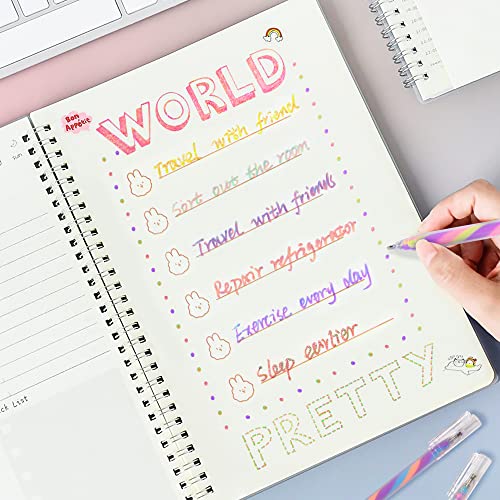 Bon
Appétit
WORLD
Travel with friend
Sort out the room
Travel with friends
Repair refrigerator
Exercise every day
sleep earlier
PRETTY
sun
ck List